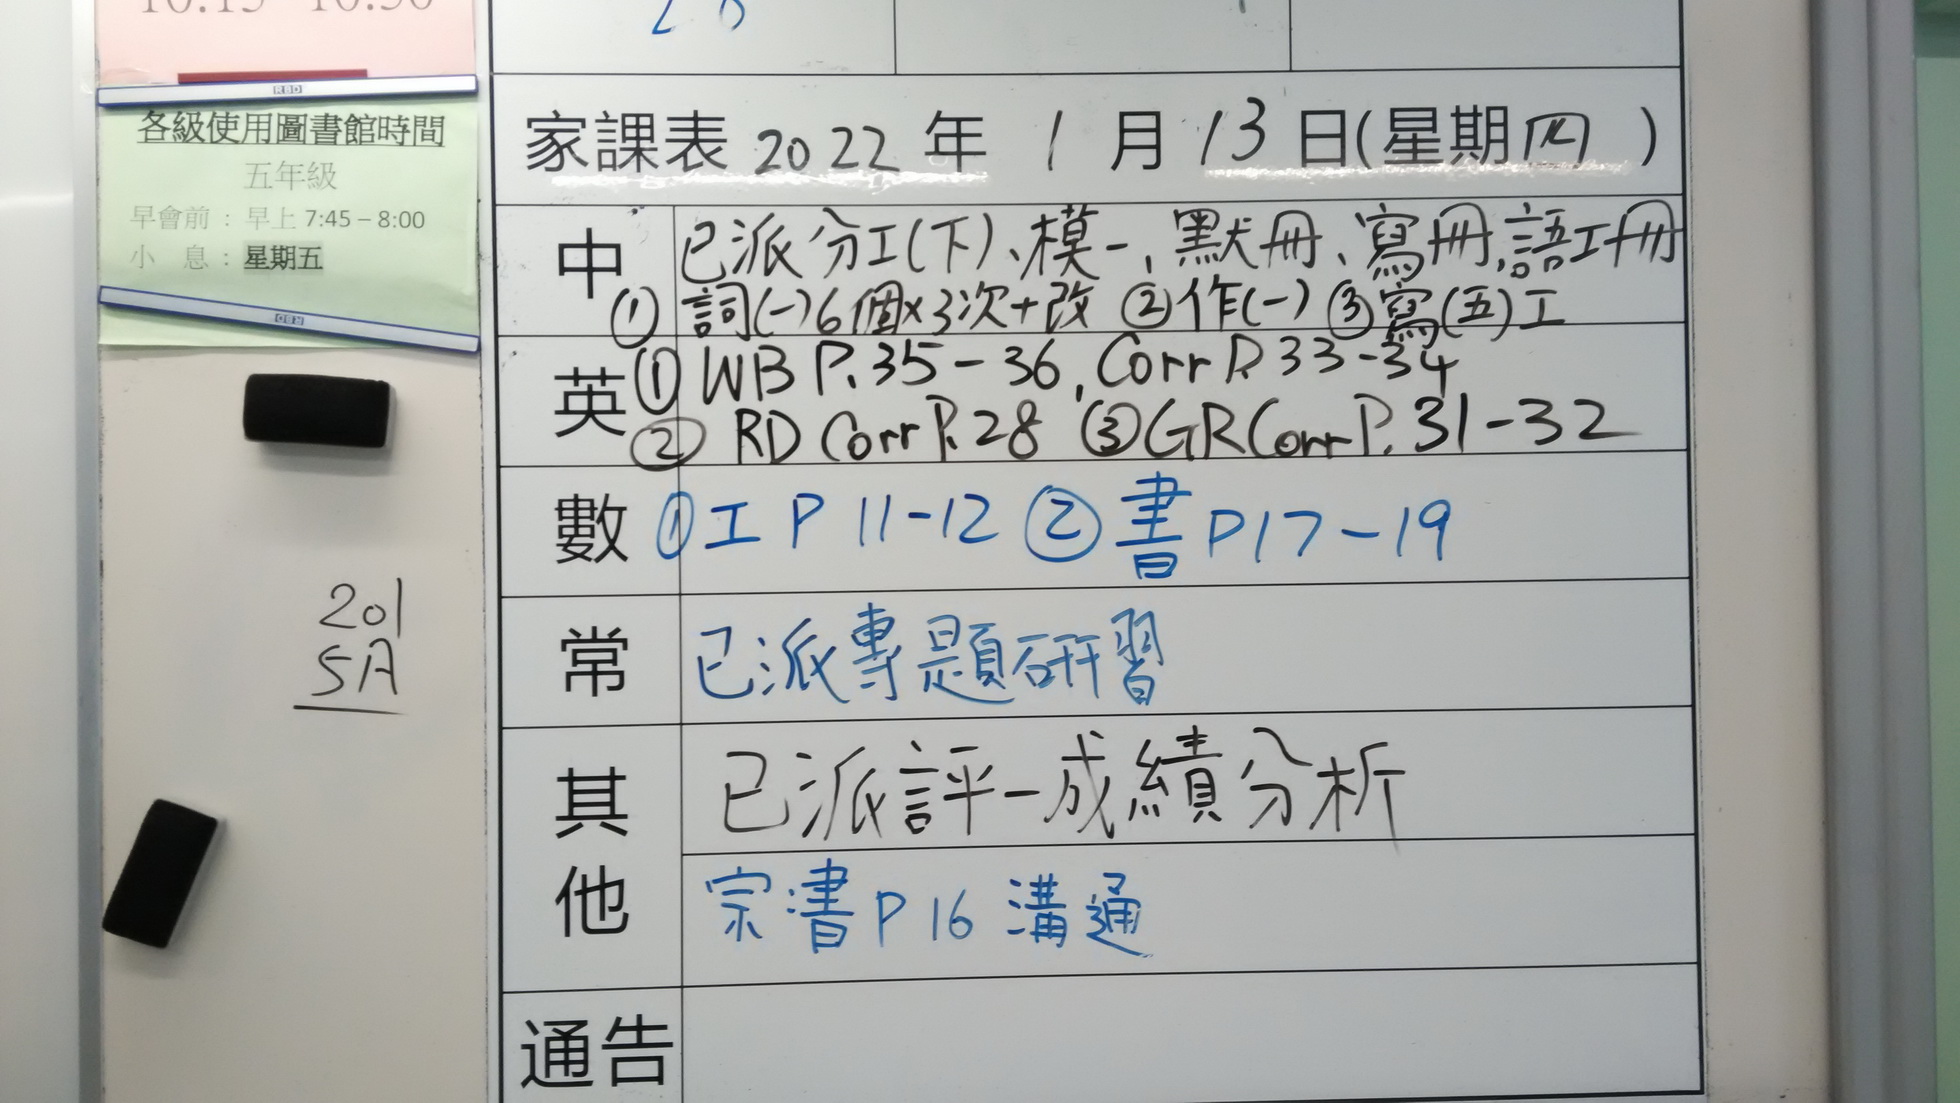 10:15 - 10:30
RBD
各級使用圖書館時間
五年級
早會前：早上 7:45 – 8:00
小　息：星期五
RBD
201
5A
家課表 2022 年 1 月 13 日(星期四)
中 已派分工(下)、模一、默冊、寫冊,語工冊
① 詞(一)6個×3次+改 ②作(一) ③寫(五)工
英 ① WB P.35-36, Corr P.33-34
② RD Corr P.28 ③GR Corr P.31-32
數 ①工 P 11-12 ②書 P17-19
常 已派專題研習
其他 已派評一成績分析
宗書 P 16 溝通
通告